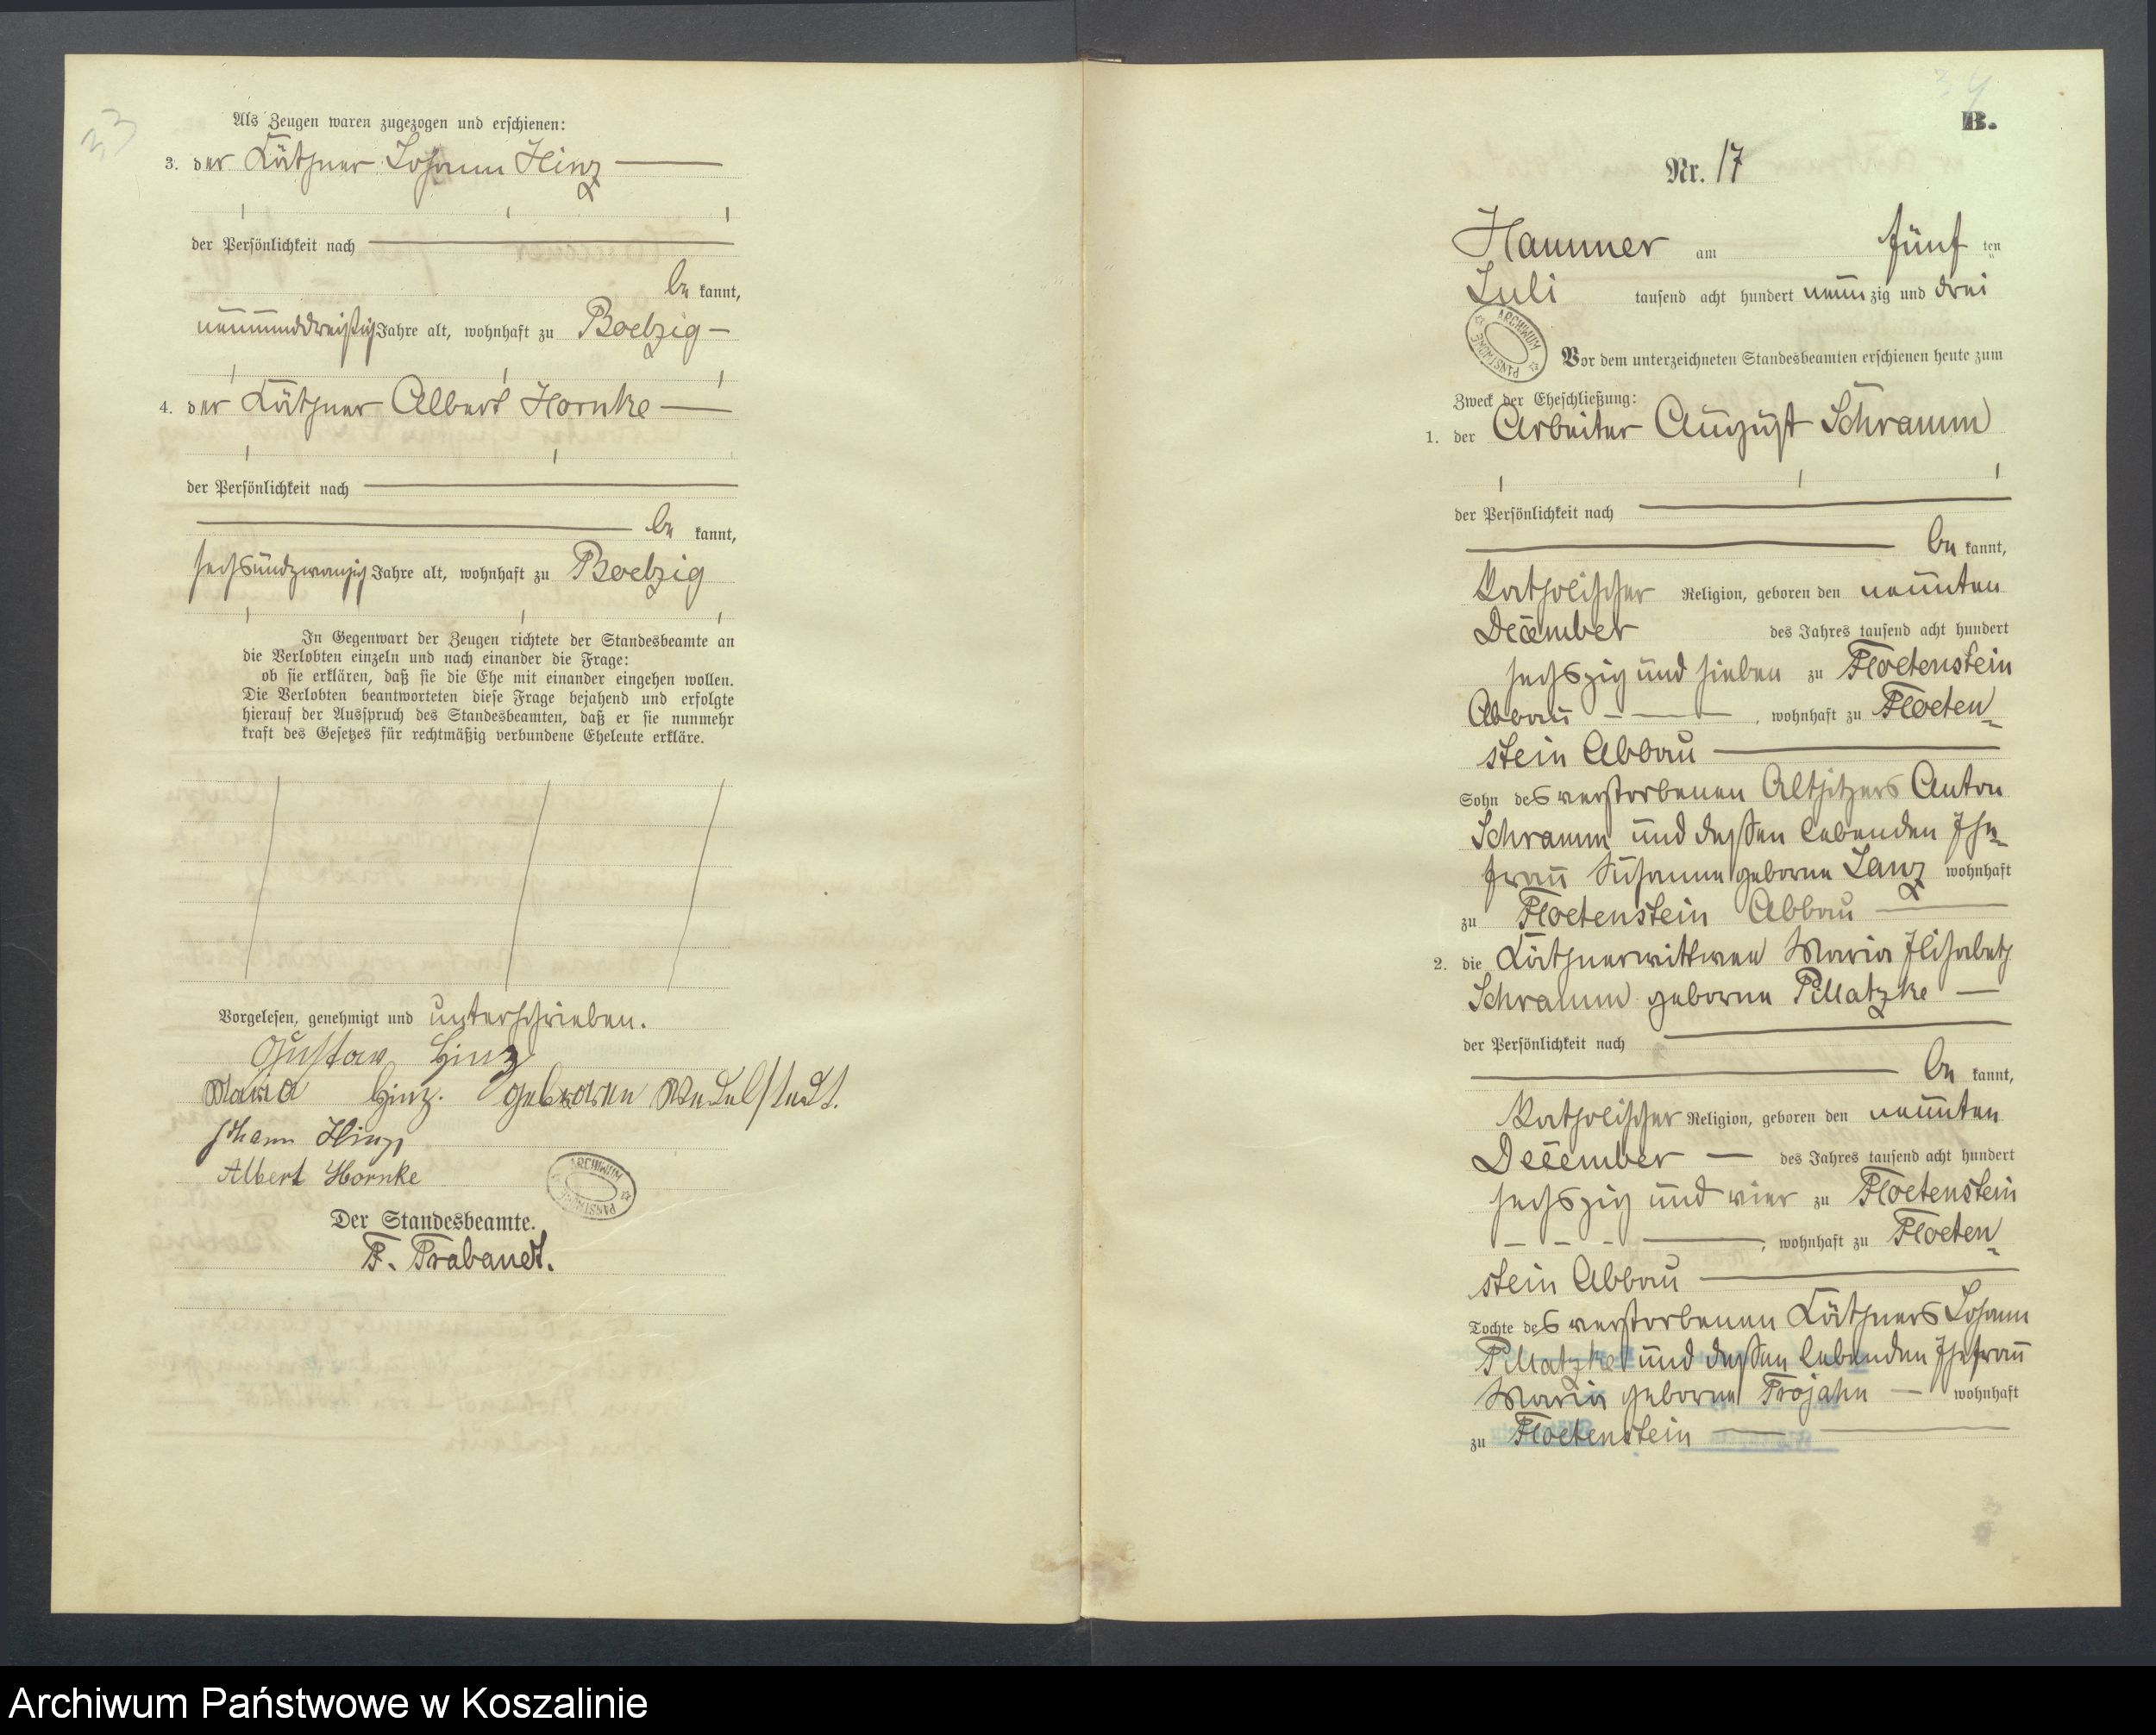 33
Als Zeugen waren zugezogen und erschienen:
3. der Käthner Johann Hinz
der Persönlichkeit nach
be kannt,
neununddreißig Jahre alt, wohnhaft zu Boelzig
4. der Käthner Albert Hornke
der Persönlichkeit nach
be kannt,
sechsundzwanzig Jahre alt, wohnhaft zu Boelzig
In Gegenwart der Zeugen richtete der Standesbeamte an
die Verlobten einzeln und nach einander die Frage:
ob sie erklären, daß sie die Ehe mit einander eingehen wollen.
Die Verlobten beantworteten diese Frage bejahend und erfolgte
hierauf der Ausspruch des Standesbeamten, daß er sie nunmehr
kraft des Gesetzes für rechtmäßig verbundene Eheleute erkläre.
Vorgelesen, genehmigt und unterschrieben.
Gustav Hinz
Maria Hinz. geboren Wedelstedt.
Johann Hinz
Albert Hornke
ARCHIWUM PAŃSTWOWE
Der Standesbeamte.
F. Prabandt.
34
B.
Nr. 17
Hammer am fünf ten
Juli tausend acht hundert neun zig und drei
ARCHIWUM PAŃSTWOWE
Vor dem unterzeichneten Standesbeamten erschienen heute zum
Zweck der Eheschließung:
1. der Arbeiter August Schramm
der Persönlichkeit nach
be kannt,
katholischer Religion, geboren den neunten
December des Jahres tausend acht hundert
sechszig und sieben zu Floetenstein
Abbau , wohnhaft zu Floeten=
stein Abbau
Sohn des verstorbenen Altsitzers Anton
Schramm und dessen lebenden Ehe=
frau Susanna geborne Janz wohnhaft
zu Floetenstein Abbau
2. die Käthnerwittwe Maria Elisabeth
Schramm geborne Pillatzke
der Persönlichkeit nach
be kannt,
katholischer Religion, geboren den neunten
December des Jahres tausend acht hundert
sechszig und vier zu Floetenstein
, wohnhaft zu Floeten=
stein Abbau
Tochte des verstorbenen Käthners Johann
Pillatzke und dessen lebenden Ehefrau
Maria geborne Trojahn wohnhaft
zu Floetenstein
Archiwum Państwowe w Koszalinie